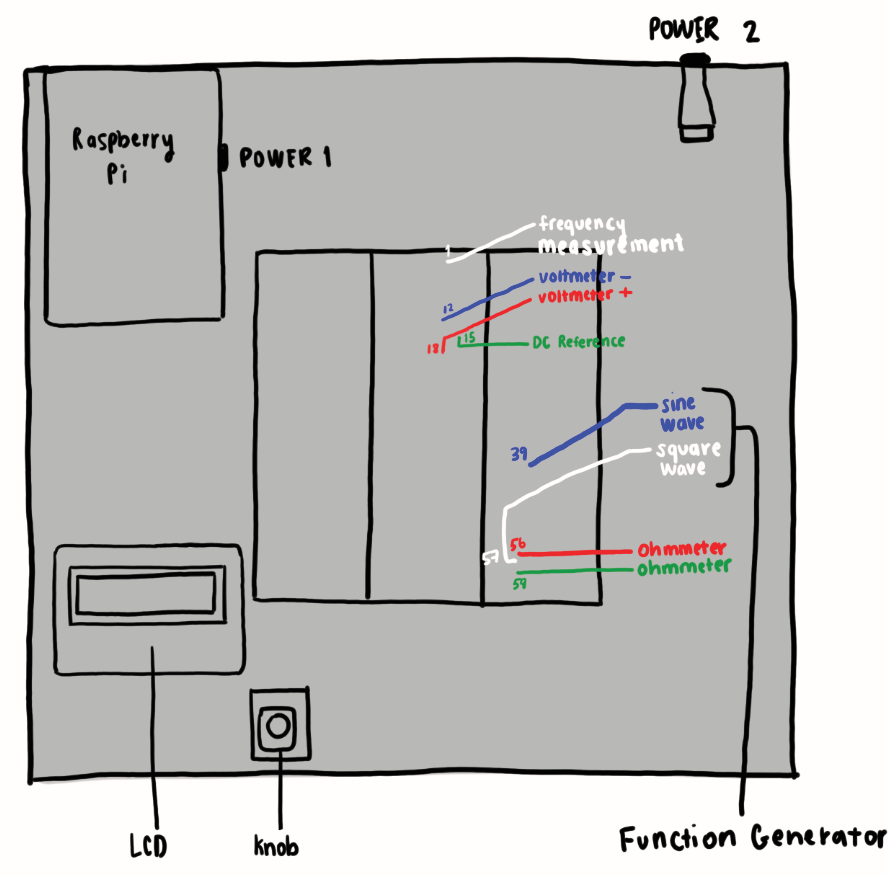 POWER 2
Raspberry
Pi
POWER 1
1
frequency
measurement
12
voltmeter -
voltmeter +
18
15
DC Reference
39
sine
wave
square
wave
57
56
Ohmmeter
59
ohmmeter
LCD
knob
Function Generator